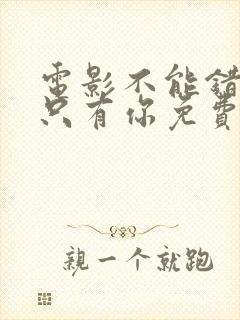 電影不能錯
只有你免費
親一个就跑